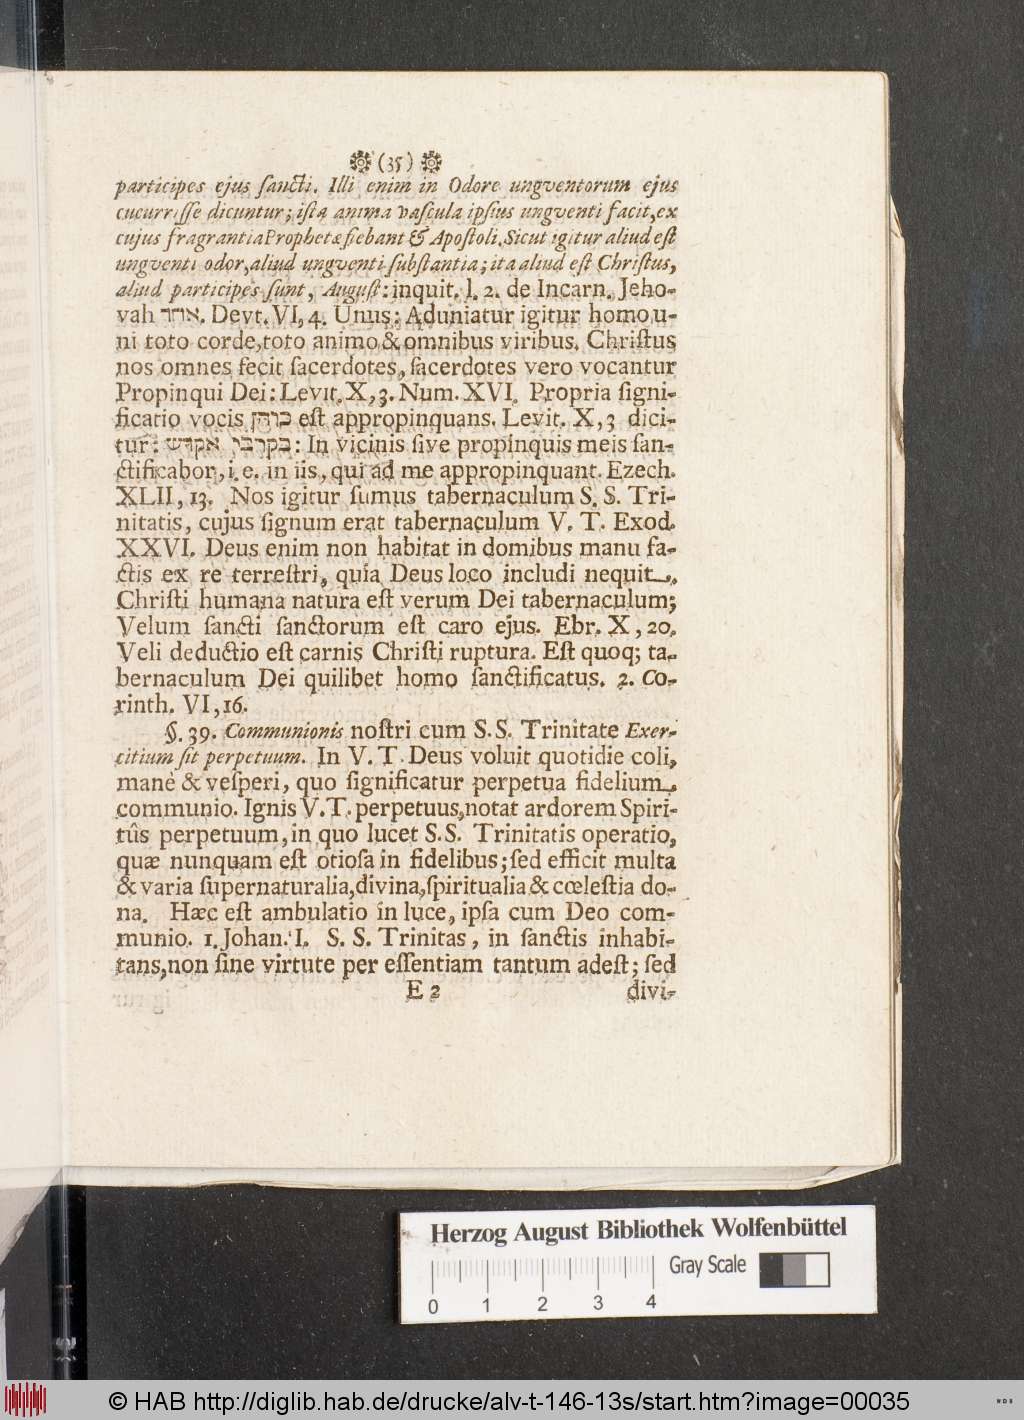 (35)
participes ejus ſancti. Illi enim in Odore ungventorum ejus
cucurriſſe dicuntur; iſta anima vaſcula ipſius ungventi facit, ex
cujus fragrantia Prophetæ fiebant & Apoſtoli. Sicut igitur aliud eſt
ungventi odor, aliud ungventi ſubſtantia; ita aliud eſt Chriſtus,
aliud participes ſunt, Auguſt: inquit. l. 2. de Incarn. Jeho-
vah אחד. Devt. VI, 4. Unus: Aduniatur igitur homo u-
ni toto corde, toto animo & omnibus viribus. Chriſtus
nos omnes fecit ſacerdotes, ſacerdotes vero vocantur
Propinqui Dei: Levit. X, 3. Num. XVI. Propria ſigni-
ficatio vocis כוהן eſt appropinquans. Levit. X, 3 dici-
tur: בקרבי אקדש: In vicinis ſive propinquis meis ſan-
ctificabor, i. e. in iis, qui ad me appropinquant. Ezech.
XLII, 13. Nos igitur ſumus tabernaculum S. S. Tri-
nitatis, cujus ſignum erat tabernaculum V. T. Exod.
XXVI. Deus enim non habitat in domibus manu fa-
ctis ex re terreſtri, quia Deus loco includi nequit.
Chriſti humana natura eſt verum Dei tabernaculum;
Velum ſancti ſanctorum eſt caro ejus. Ebr. X, 20.
Veli deductio eſt carnis Chriſti ruptura. Eſt quoq; ta-
bernaculum Dei quilibet homo ſanctificatus. 2. Co-
rinth. VI, 16.
§. 39. Communionis noſtri cum S. S. Trinitate Exer-
citium ſit perpetuum. In V. T. Deus voluit quotidie coli,
manè & veſperi, quo ſignificatur perpetua fidelium
communio. Ignis V. T. perpetuus, notat ardorem Spiri-
tûs perpetuum, in quo lucet S. S. Trinitatis operatio,
quæ nunquam eſt otioſa in fidelibus; ſed efficit multa
& varia ſupernaturalia, divina, ſpiritualia & cœleſtia do-
na. Hæc eſt ambulatio in luce, ipſa cum Deo com-
munio. 1. Johan. I. S. S. Trinitas, in ſanctis inhabi-
tans, non ſine virtute per eſſentiam tantum adeſt; ſed
E 2 divi-
Herzog August Bibliothek Wolfenbüttel
Gray Scale
0 1 2 3 4
© HAB http://diglib.hab.de/drucke/alv-t-146-13s/start.htm?image=00035